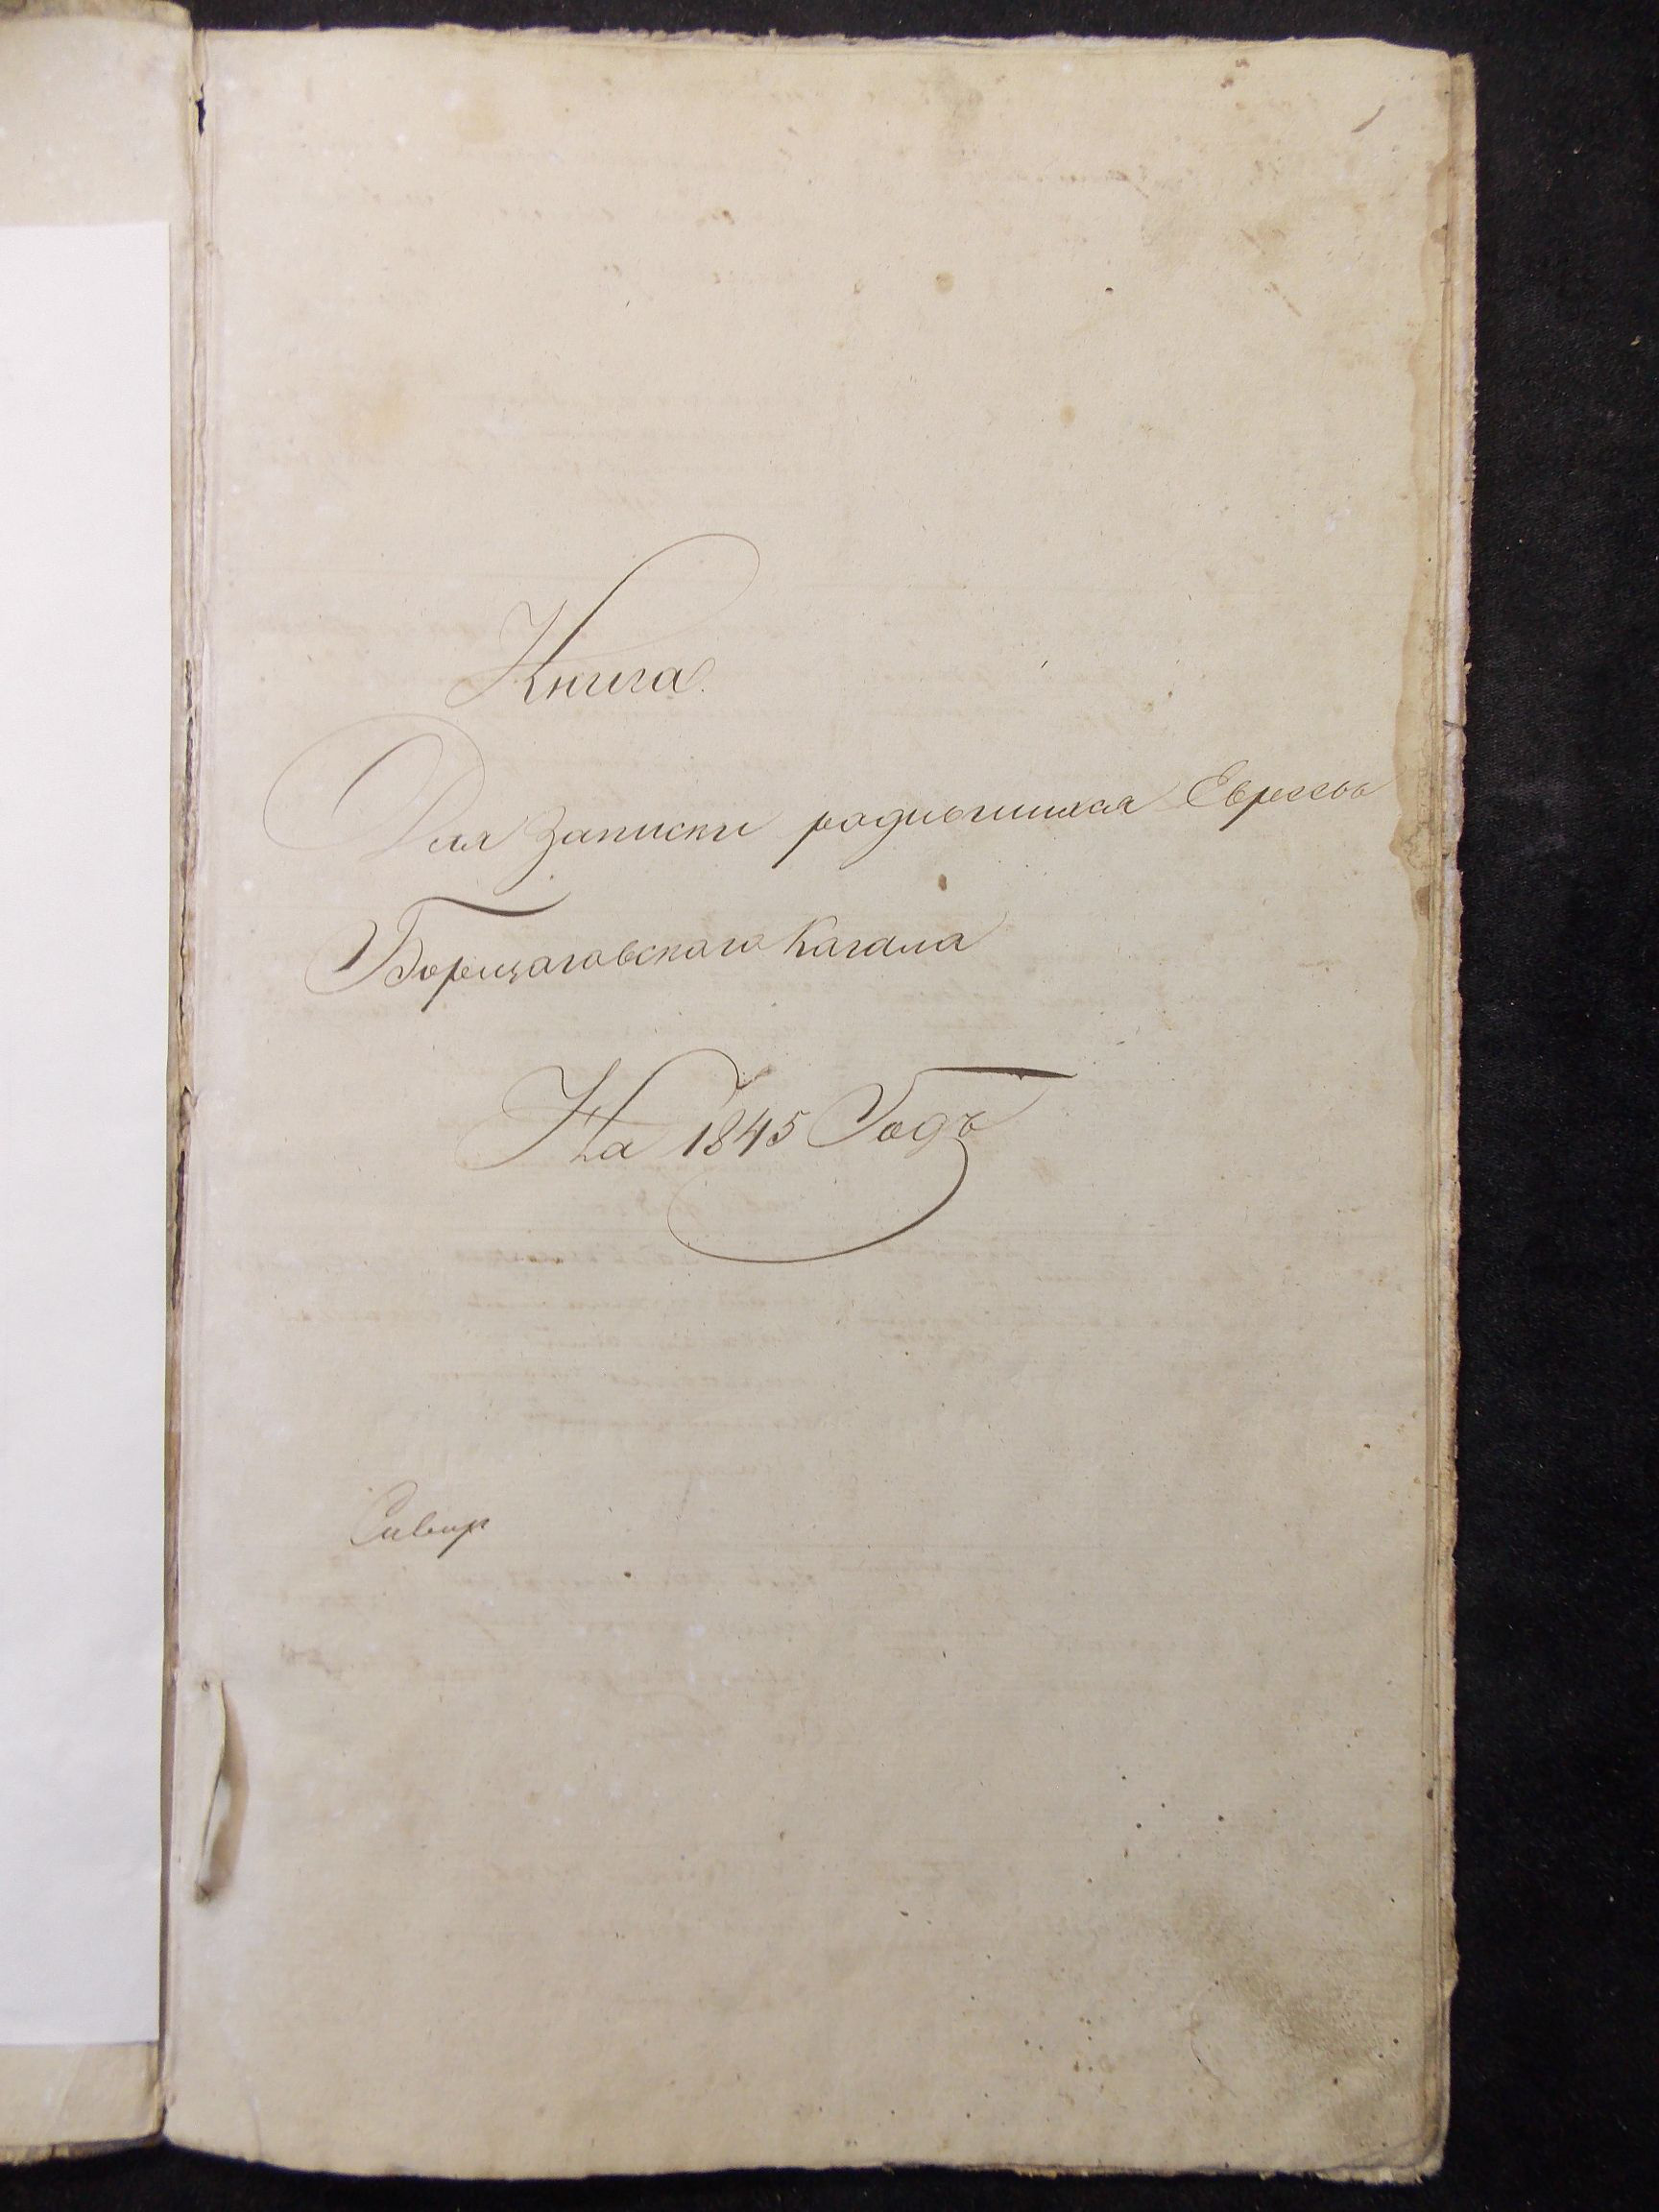 1
Книга
Для Записки родившихся Евреевъ
Борщаговскаго Кагала
На 1845 Годъ